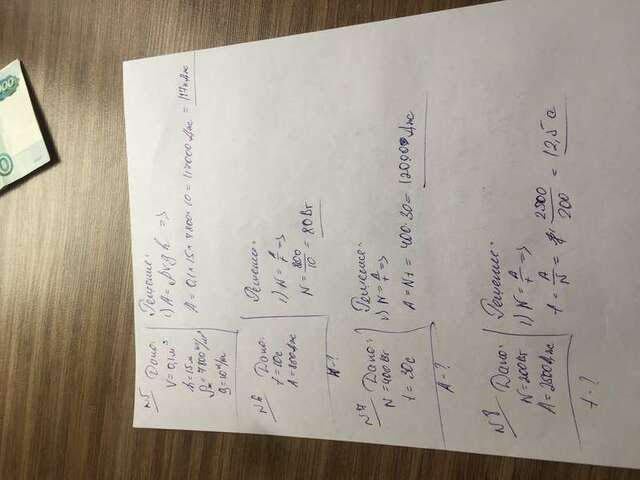 №5 Дано:
V=0,1м³
h=15м
g=10н/кг
Решение:
1) A=ρVgh =>
A=0,1·15·7800·10=117000Дж=117кДж
№6
Дано:
t=10с
A=800Дж
N-?
Решение:
1) N=A/t =>
N=800/10=80Вт
№7 Дано:
N=400Вт
t=30с
A-?
Решение:
1) N=A/t =>
A=Nt=400·30=12000Дж
№8 Дано:
N=200Вт
A=2500Дж
t-?
Решение:
1) N=A/t =>
t=A/N=2500/200=12,5с